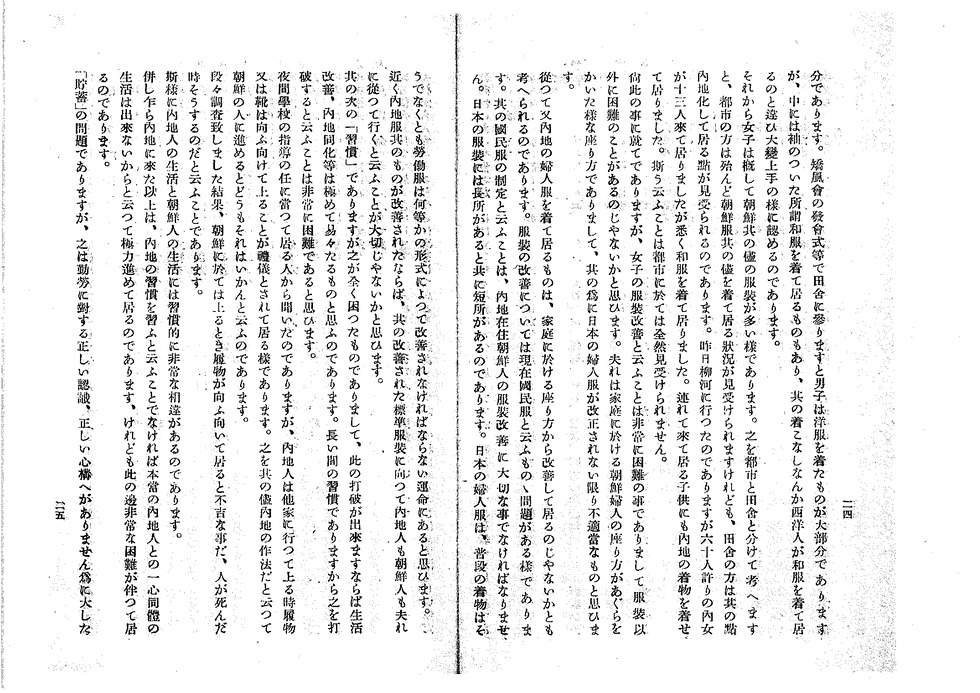 分であります。矯風會の發會式等で田舎に參りますと男子は洋服を着たものが大部分であります
が、中には袖のついた所謂和服を着て居るものもあり、其の着こなしなんか西洋人が和服を着て居
るのと違ひ大變上手の様に認めるのであります。
それから女子は概して朝鮮共の儘の服裝が多い様であります。之を都市と田舎と分けて考へます
と、都市の方は殆んど朝鮮服共の儘を着て居る狀況が見受けられますけれども、田舎の方は其の點
內地化して居る點が見受られるのであります。昨日柳河に行つたのでありますが六十人許りの內女
が十三人來て居りましたが悉く和服を着て居りました。連れて來て居る子供にも內地の着物を着せ
て居りました。斯う云ふことは都市に於ては全然見受けられません。
尙此の事に就てでありますが、女子の服裝改善と云ふことは非常に困難の事でありまして服裝以
外に困難のことがあるのじやないかと思ひます。夫れは家庭に於ける朝鮮婦人の座り方があぐらを
かいた様な座り方でありまして、其の爲に日本の婦人服が改正されない限り不適當なものと思ひま
す。
從つて又內地の婦人服を着て居るものは、家庭に於ける座り方から改善して居るのじやないかとも
考へられるのであります。服裝の改善については現在國民服と云ふものゝ問題がある様でありま
す。其の國民服の制定と云ふことは、內地在住朝鮮人の服裝改善に大切な事でなければなりませ
ん。日本の服裝には長所があると共に短所があるのであります。日本の婦人服は、普段の着物はそ
二四
うでなくとも勞働服は何等かの形式によつて改善されなければならない運命にあると思ひます。
近く內地服共のものが改善されたならば、其の改善された標準服裝に向つて內地人も朝鮮人も夫れ
に從つて行くと云ふことが大切じやないかと思ひます。
其の次の「習慣」でありますが之が全く困つたものでありまして、此の打破が出來ますならば生活
改善、內地同化等は極めて易々たるものと思ふのであります。長い間の習慣でありますから之を打
破すると云ふことは非常に困難であると思ひます。
夜間學校の指導の任に當つて居る人から聞いたのでありますが、內地人は他家に行つて上る時履物
又は靴は向ふ向けて上ることが禮儀とされて居る様であります。之を共の儘內地の作法だと云つて
朝鮮の人に進めるとどうもそれはいかんと云ふのであります。
段々調査致しました結果、朝鮮に於ては上るとき履物が向ふ向いて居ると不吉な事だ、人が死んだ
時そうするのだと云ふことであります。
斯様に內地人の生活と朝鮮人の生活には習慣的に非常な相違があるのであります。
併し乍ら內地に來た以上は、內地の習慣を習ふと云ふことでなければ本當の內地人との一心同體の
生活は出來ないからと云つて極力進めて居るのであります、けれども此の邊非常な困難が伴つて居
るのであります。
「貯蓄」の問題でありますが、之は勤勞に對する正しい認識、正しい心構へがありません爲に大した
二五